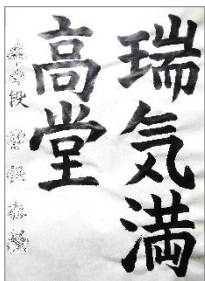 瑞気満
高堂
段